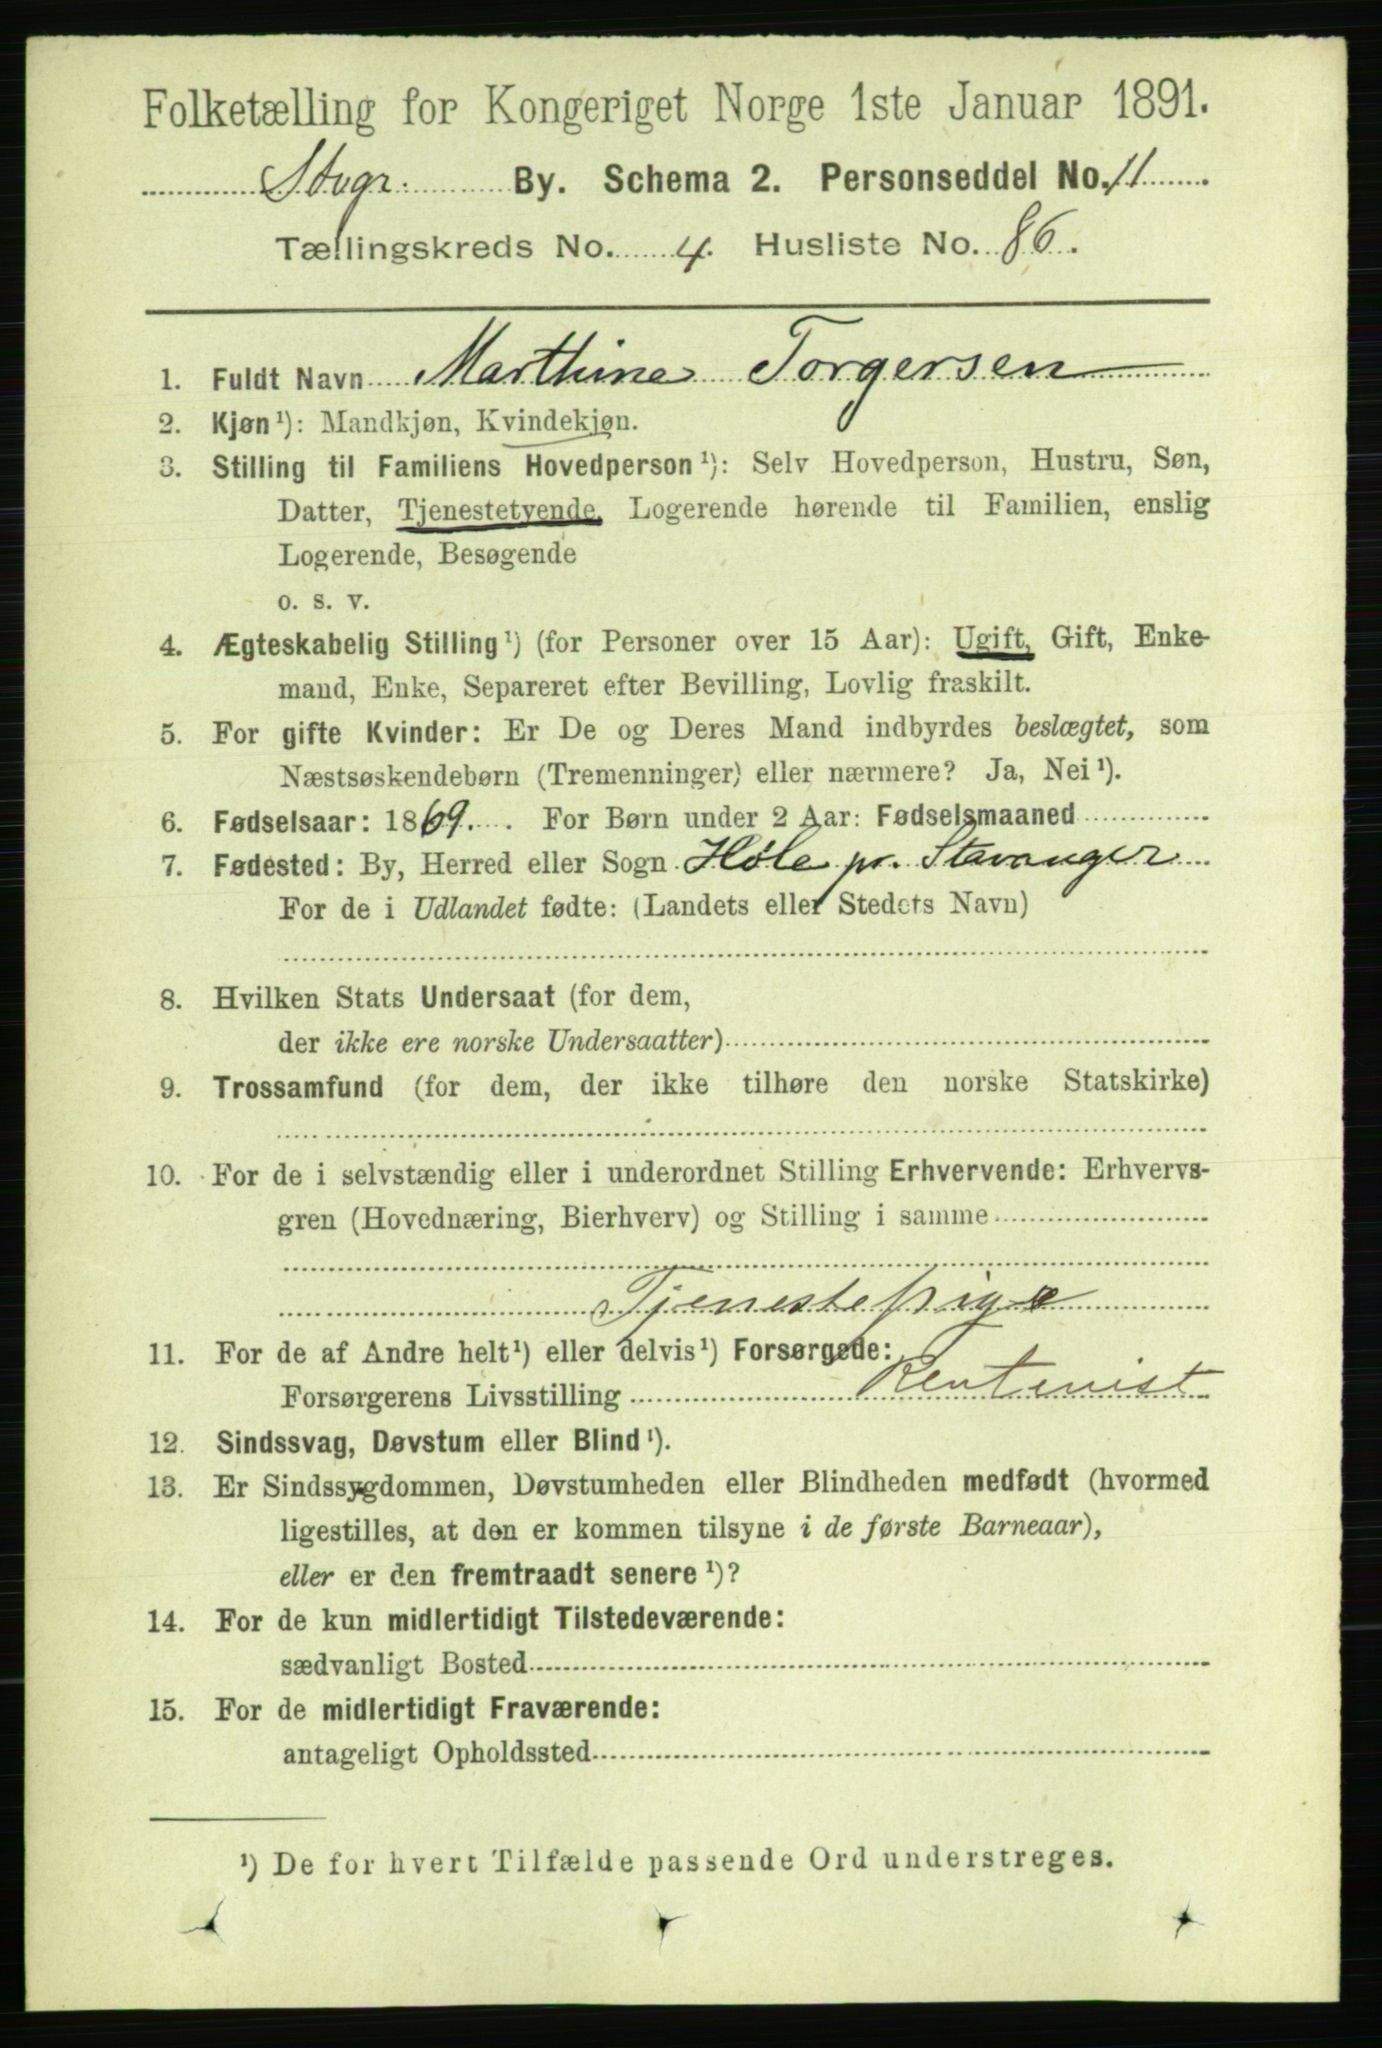 Folketælling for Kongeriget Norge 1ste Januar 1891.
Stvgr. By. Schema 2. Personseddel No. 11
Tællingskreds No. 4. Husliste No. 86.
1. Fuldt Navn Marthine Torgersen
2. Kjøn¹): Mandkjøn, Kvindekjøn.
3. Stilling til Familiens Hovedperson¹): Selv Hovedperson, Hustru, Søn,
Datter, Tjenestetyende, Logerende hørende til Familien, enslig
Logerende, Besøgende
o. s. v.
4. Ægteskabelig Stilling¹) (for Personer over 15 Aar): Ugift, Gift, Enke-
mand, Enke, Separeret efter Bevilling, Lovlig fraskilt.
5. For gifte Kvinder: Er De og Deres Mand indbyrdes beslægtet, som
Næstsøskendebørn (Tremenninger) eller nærmere? Ja, Nei¹).
6. Fødselsaar: 1869. For Børn under 2 Aar: Fødselsmaaned
7. Fødested: By, Herred eller Sogn Høle pr. Stavanger
For de i Udlandet fødte: (Landets eller Stedets Navn)
8. Hvilken Stats Undersaat (for dem,
der ikke ere norske Undersaatter)
9. Trossamfund (for dem, der ikke tilhøre den norske Statskirke)
10. For de i selvstændig eller i underordnet Stilling Erhvervende: Erhvervs-
gren (Hovednæring, Bierhverv) og Stilling i samme
Tjenestepige
11. For de af Andre helt¹) eller delvis¹) Forsørgede:
Forsørgerens Livsstilling Rentenist
12. Sindssvag, Døvstum eller Blind¹).
13. Er Sindssygdommen, Døvstumheden eller Blindheden medfødt (hvormed
ligestilles, at den er kommen tilsyne i de første Barneaar),
eller er den fremtraadt senere¹)?
14. For de kun midlertidigt Tilstedeværende:
sædvanligt Bosted
15. For de midlertidigt Fraværende:
antageligt Opholdssted
¹) De for hvert Tilfælde passende Ord understreges.